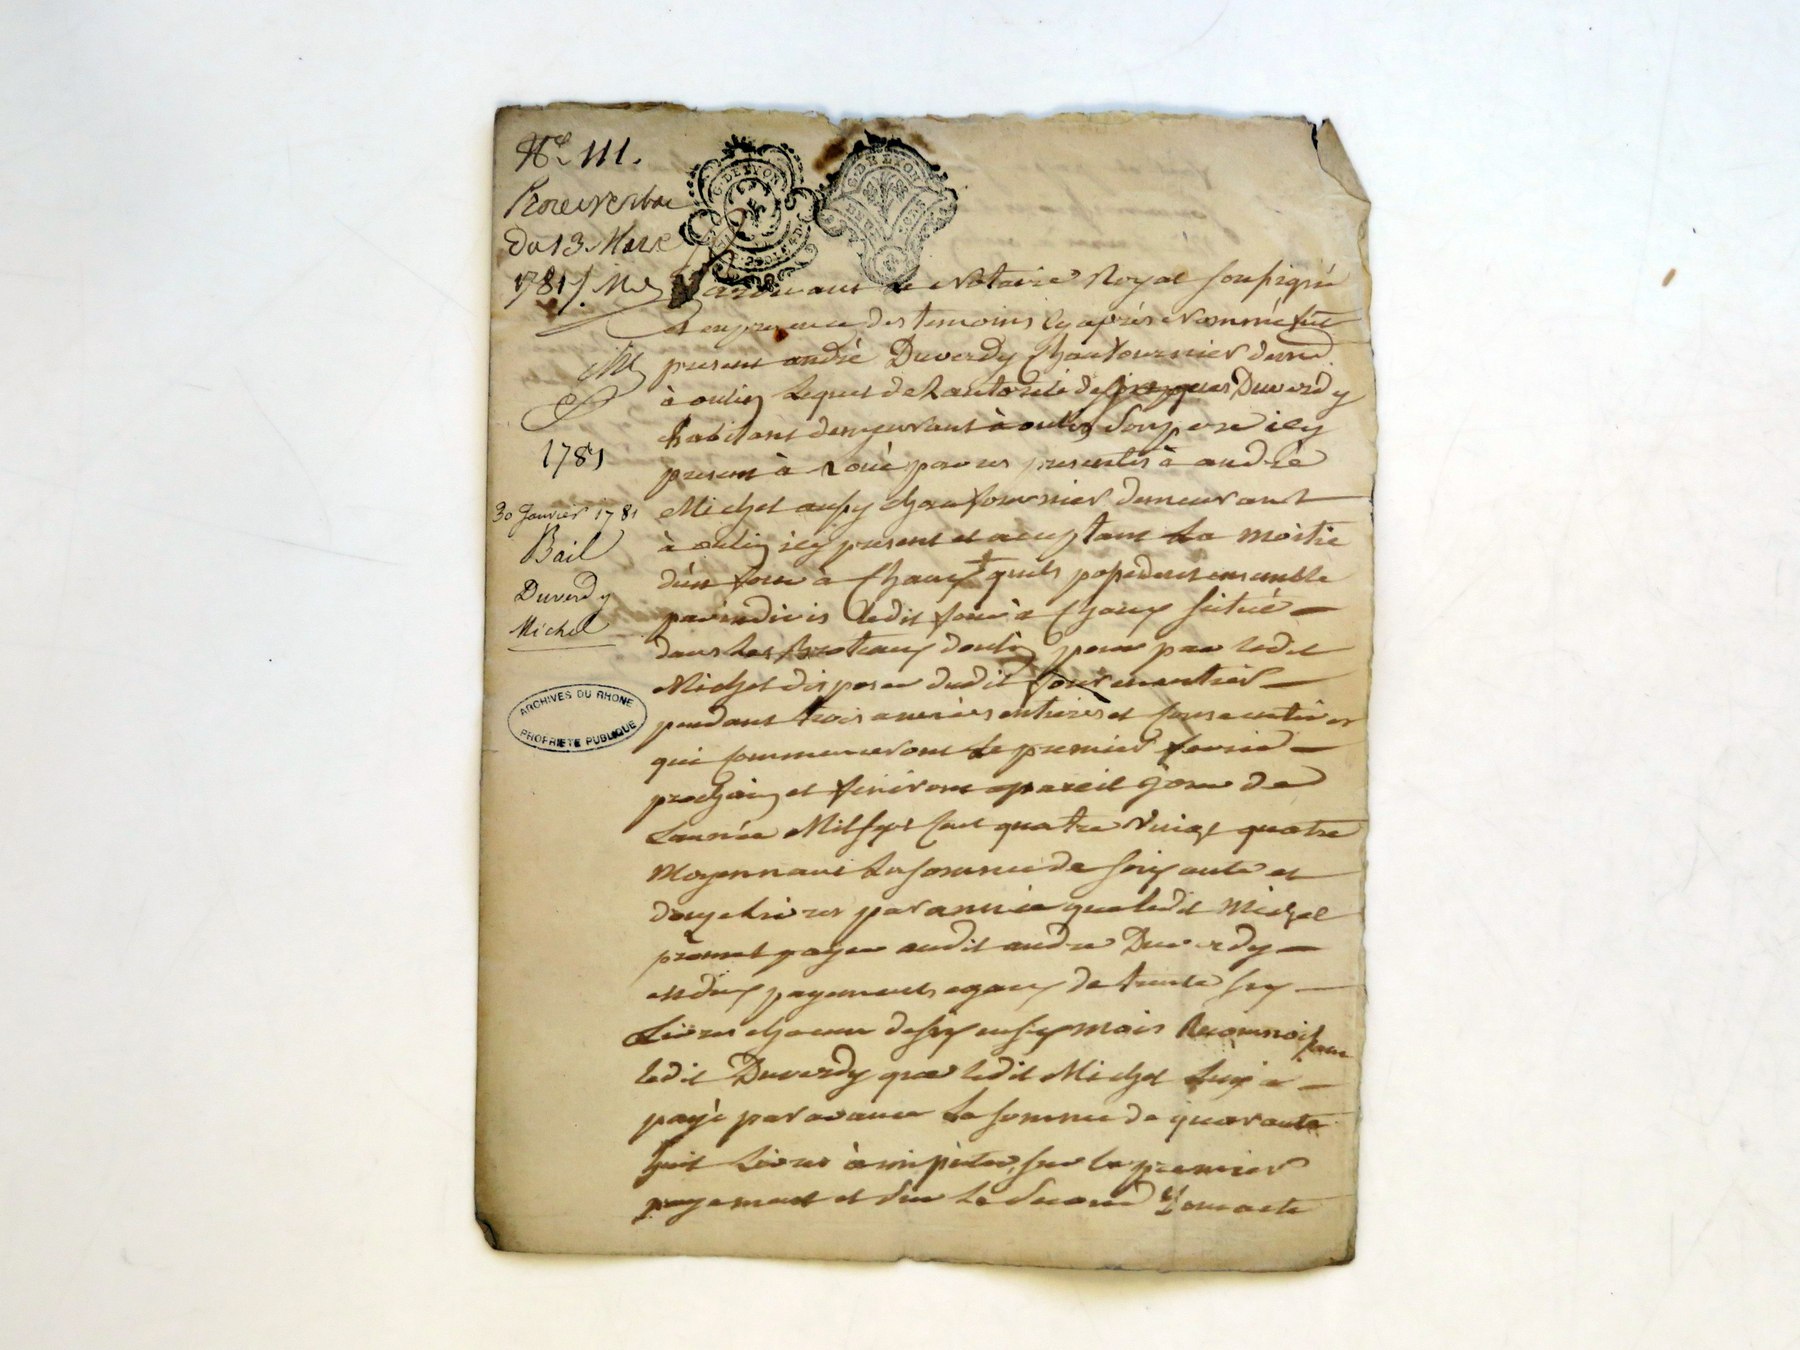 N° 111.
Procès verbal
Du 13. Mars
1781 /.
1781
30 Janvier 1781
Bail
Duverdy
Michel
ARCHIVES DU RHONE
PROPRIETE PUBLIQUE
G. DE LYON
G. DE LYON
Pardevant le Notaire Royal soussigné
et en presence des temoins cy après nommé fut
present andré Duverdy Chaufournier dem.t
à oulin lequel de Lautorité de jacques Duverdy
habitant demeurant à oulin son pere icy
present à Loué par ces presentes à andré
Michel aussy chaufournier demeurant
à oulin icy present et acceptant La moitié
d'un four à Chaux quils possedent ensemble
par indivis ledit four à Chaux situé
dans Les Broteaux doulin pour par ledit
Michel disposer dudit four en entier
pendant trois années entieres et consecutives
qui commenceront Le premier fevrier
prochain et finiront a pareil jour de
Lannée Mil sept cent quatre vingt quatre
Moyennant La somme de soixante et
douze Livres par année que ledit Michel
promet payer audit andré Duverdy
en deux payements egaux de trente six
Livres chacun de six en six mois Reconnoissant
ledit Duverdy que ledit Michel Luy a
payé par avance La somme de quarante
huit Livres à imputer sur le premier
payement et sur Le second